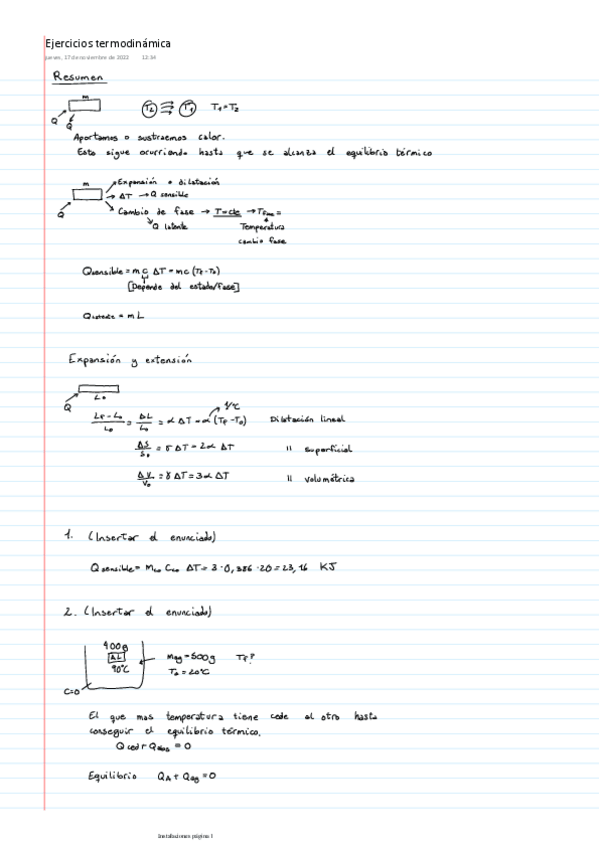 Ejercicios termodinámica
jueves, 17 de noviembre de 2022 12:34
Resumen
m
Q
T₂ T₁ T₁=T₂
Aportamos o sustraemos calor.
Esto sigue ocurriendo hasta que se alcanza el equilibrio térmico
m → Expansión o dilatación
→ ΔT → Q sensible
Q
Cambio de fase → T=cte → T fase =
Q latente Temperatura
cambio fase
Qsensible = m c ΔT = mc (TF-T0)
[Depende del estado/fase]
Qlatente = m L
Expansión y extensión
Q L0
1/ºC
LF - L0 / L0 = ΔL / L0 = α ΔT = α (TF - T0) Dilatación lineal
ΔS / S0 = σ ΔT = 2α ΔT " superficial
ΔV / V0 = γ ΔT = 3α ΔT " volumétrica
1. (Insertar el enunciado)
Qsensible = Mco Cco ΔT = 3 · 0,386 · 20 = 23,16 KJ
2. (Insertar el enunciado)
400g
AL
90ºC
Mag = 500g TF?
T0 = 20ºC
C=0
El que mas temperatura tiene cede al otro hasta
conseguir el equilibrio térmico.
Qced + Qabs = 0
Equilibrio QA + Qag = 0
Instalaciones página 1